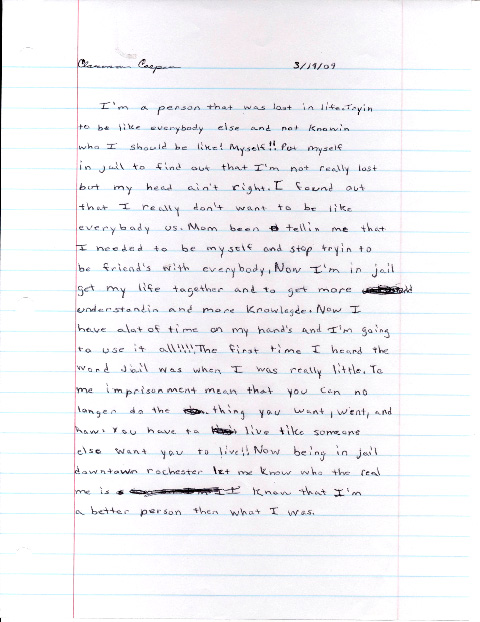 3/19/09
I'm a person that was lost in life. Tryin
to be like everybody else and not knowin
who I should be like! Myself!! Put myself
in jail to find out that I'm not really lost
but my head ain't right. I found out
that I really don't want to be like
everybody us. Mom been tellin me that
I needed to be myself and stop tryin to
be friend's with everybody. Now I'm in jail
get my life together and to get more
understandin and more knowlegde. Now I
have alot of time on my hand's and I'm going
to use it all!!!! The first time I heard the
word Jail was when I was really little. To
me imprisonment mean that you can no
longer do the thing you want, went, and
how. You have to live like someone
else want you to live!! Now being in jail
downtown rochester let me know who the real
me is I know that I'm
a better person then what I was.